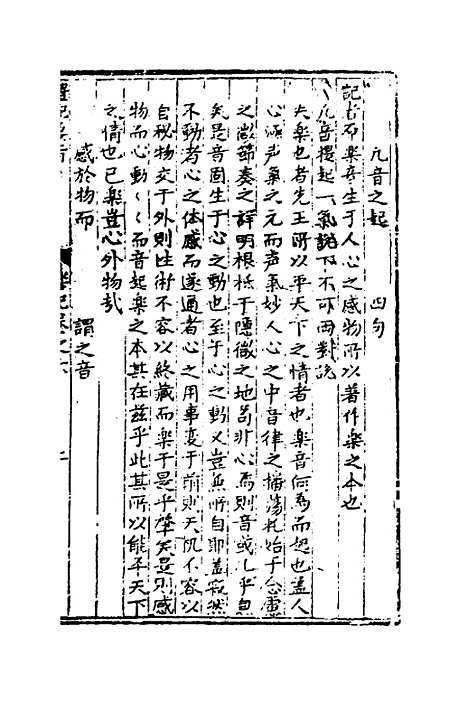 凡音之起　四句
記者言乐音生于人心之感物所以著作楽之本也
凡音提起一氣説下不可两對説
夫楽也者先王所以平天下之情者也楽音何為而起也盖人
心涵声氣之元而声氣妙人心之中音律之播蕩托始于念慮
之微節奏之詳明根柢于隱微之地苟非心焉則音或几乎息
矣是音固生于心之動也至于心之動又豈無所自耶盖寂然
不動者心之体感而遂通者心之用事変于前則天机不容以
自秘物交于外則性術不容以終藏而楽于是乎肇矣是則感
物而心動〻〻而音起楽之本其在兹乎此其所以能平天下
之情也已楽豈心外物哉
感於物而　謂之音